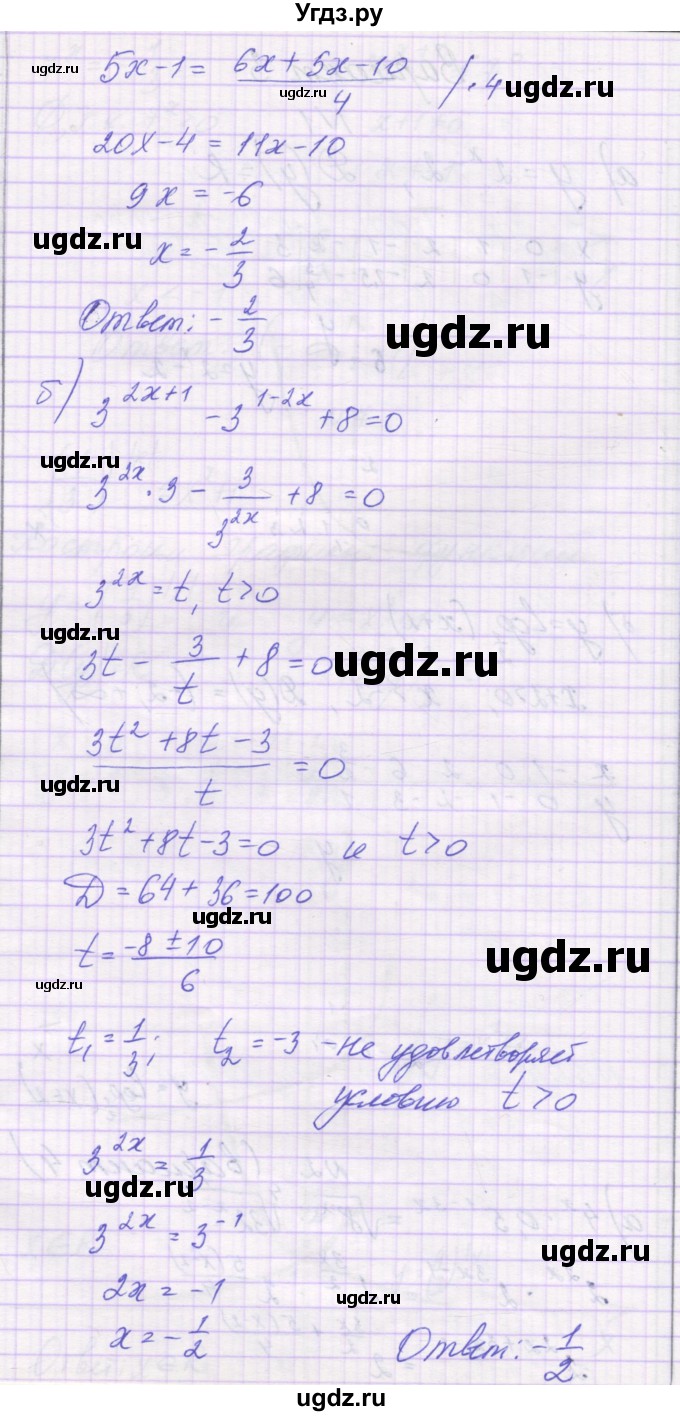 Угдз.ру
5x-1 = (6x+5x-10)/4 /·4
ugdz.ru
ugdz.ru
ugdz.ru
20x-4 = 11x-10
9x = -6
ugdz.ru
x = -2/3
Ответ: -2/3
ugdz.ru
б) 3^(2x+1) - 3^(1-2x) + 8 = 0
ugdz.ru
3^(2x) · 3 - 3/3^(2x) + 8 = 0
3^(2x) = t, t>0
ugdz.ru
3t - 3/t + 8 = 0
ugdz.ru
(3t²+8t-3)/t = 0
ugdz.ru
3t²+8t-3=0 и t>0
D = 64+36=100
ugdz.ru
t = (-8±10)/6
ugdz.ru
ugdz.ru
t₁ = 1/3; t₂ = -3 - не удовлетворяет
условию t>0
3^(2x) = 1/3
ugdz.ru
3^(2x) = 3^(-1)
ugdz.ru
2x = -1
ugdz.ru
x = -1/2
Ответ: -1/2.
ugdz.ru